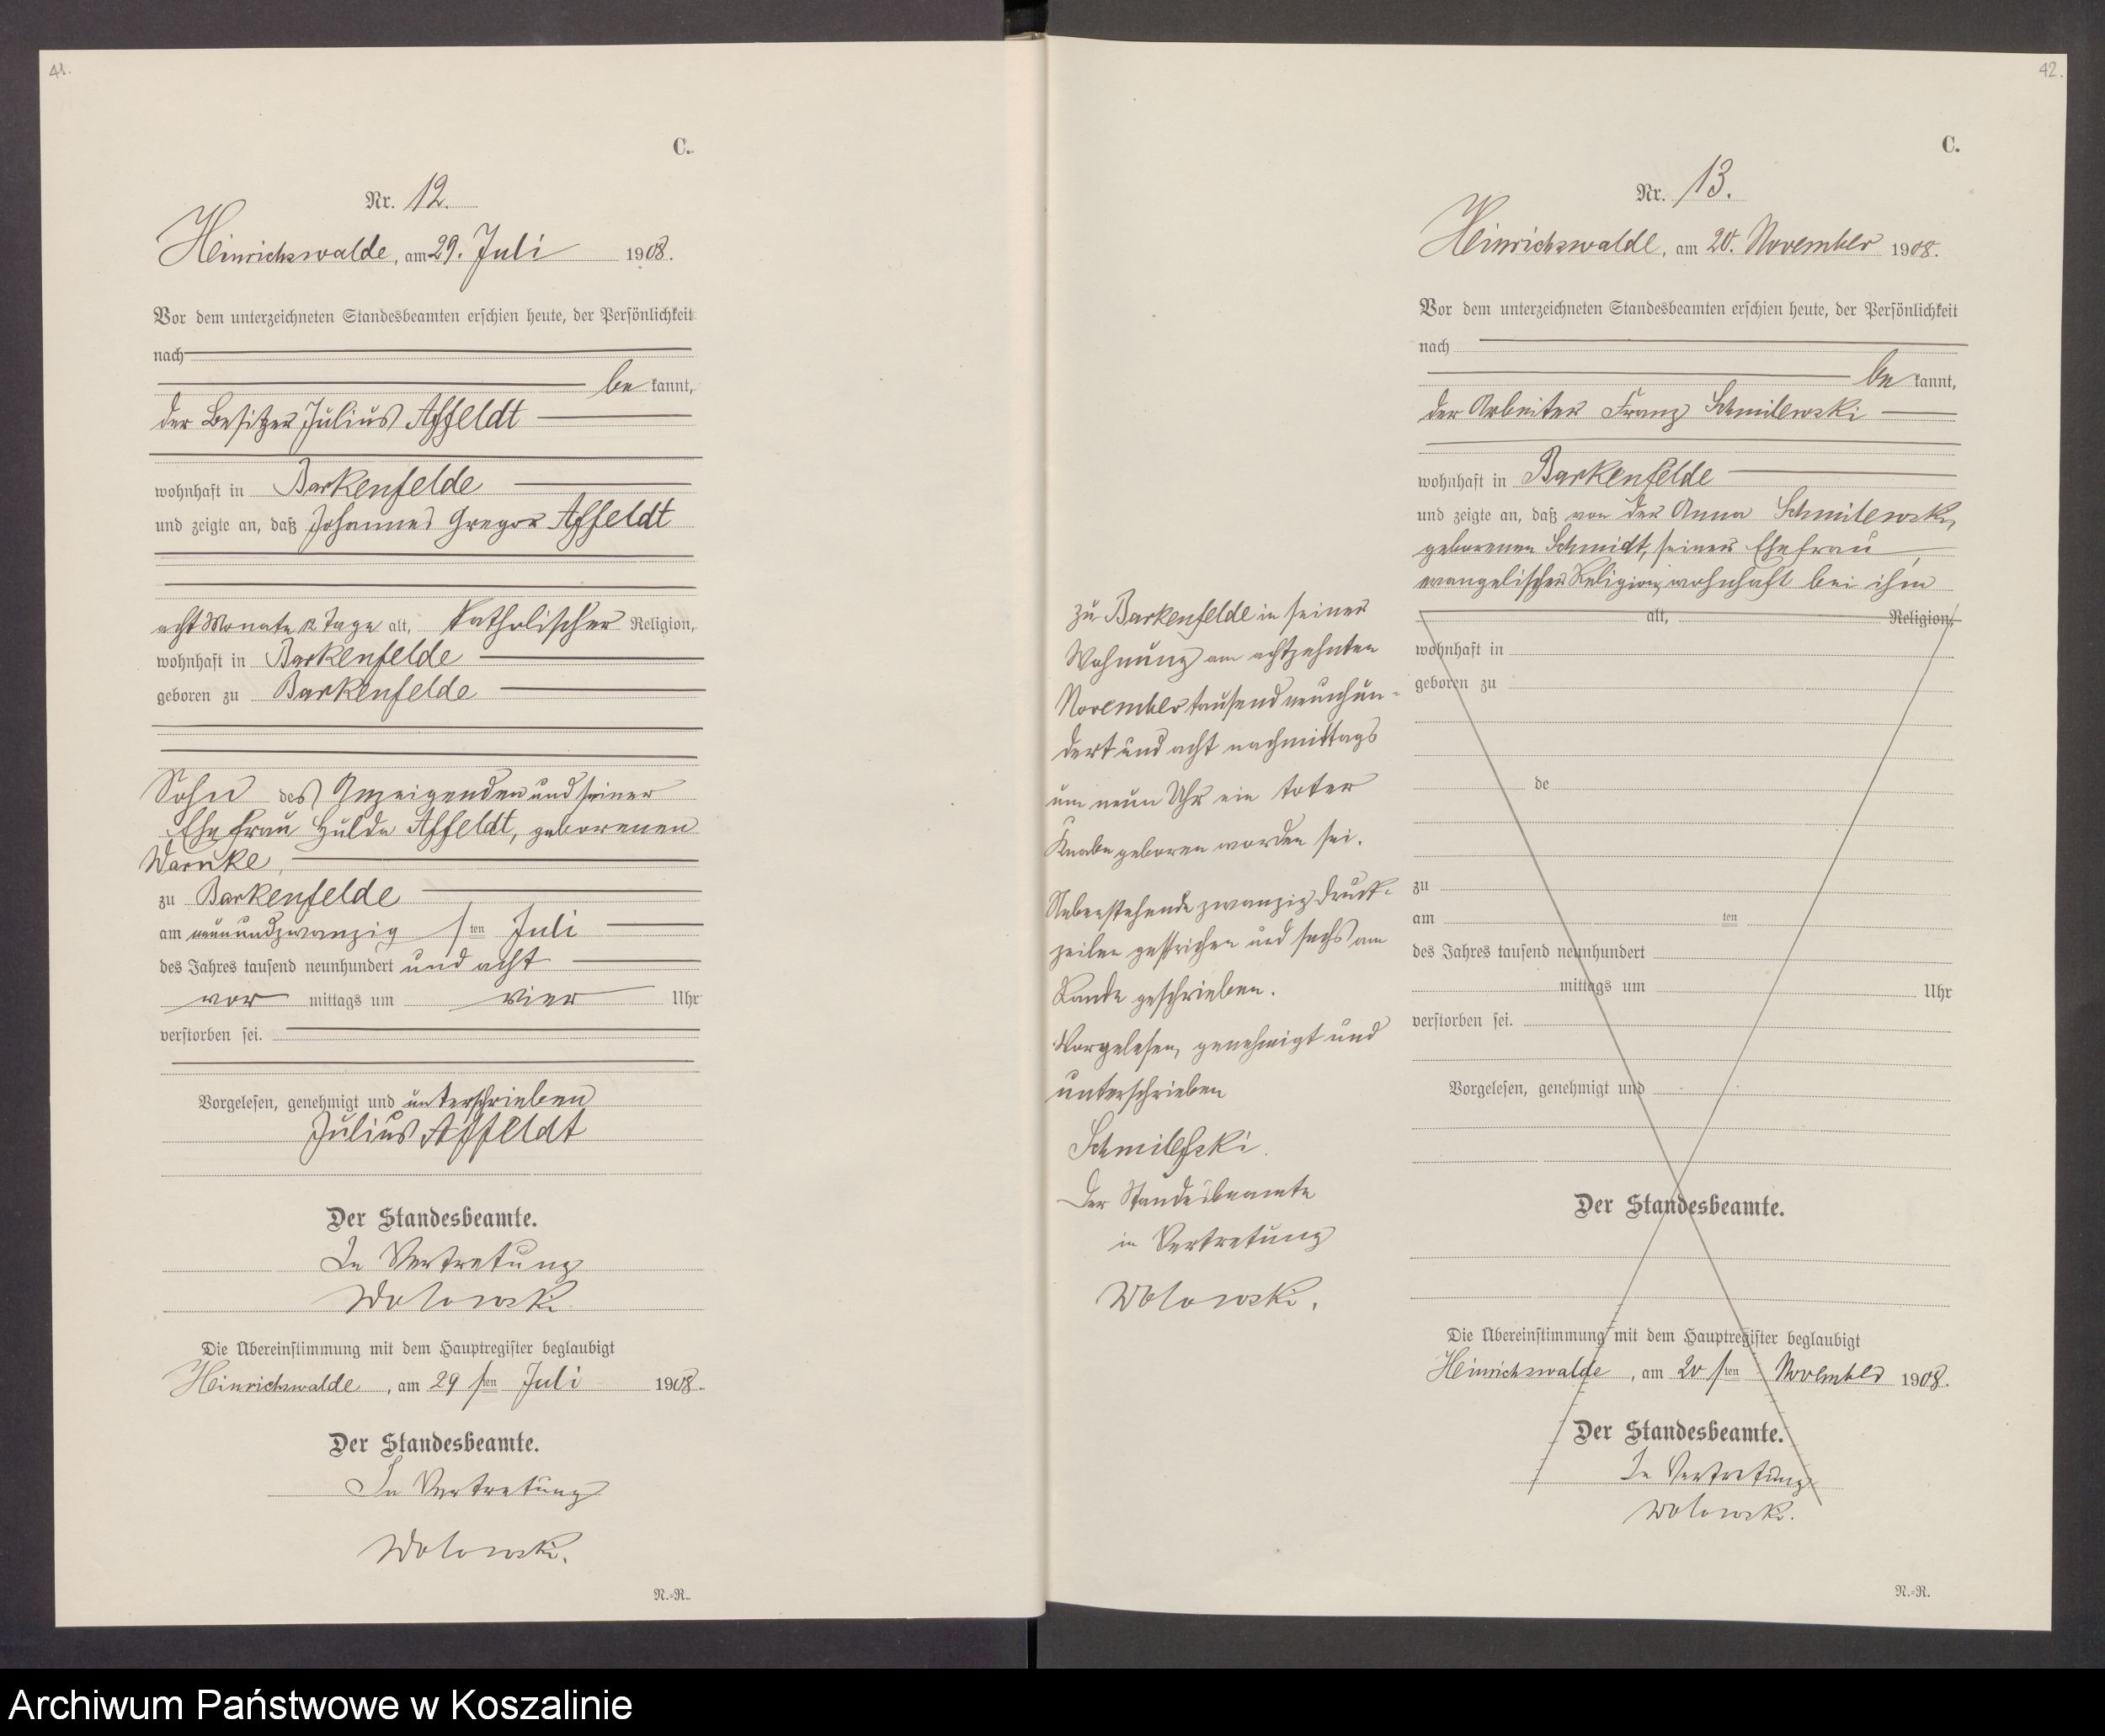 41.
C.
Nr. 12.
Heinrichswalde, am 29. Juli 1908.
Vor dem unterzeichneten Standesbeamten erschien heute, der Persönlichkeit
nach
be kannt,
der Besitzer Julius Affeldt
wohnhaft in Barkenfelde
und zeigte an, daß Johannes Gregor Affeldt
acht Monate 12 Tage alt, katholischer Religion,
wohnhaft in Barkenfelde
geboren zu Barkenfelde
Sohn des Anzeigenden und seiner
Ehefrau Hulda Affeldt, geborenen
Warnke,
zu Barkenfelde
am neunundzwanzigsten Juli
des Jahres tausend neunhundert und acht
vor mittags um vier Uhr
verstorben sei.
Vorgelesen, genehmigt und unterschrieben
Julius Affeldt
Der Standesbeamte.
In Vertretung
Wolowski
Die Übereinstimmung mit dem Hauptregister beglaubigt
Heinrichswalde, am 29 sten Juli 1908.
Der Standesbeamte.
In Vertretung
Wolowski.
N.=R.
42.
C.
Nr. 13.
Heinrichswalde, am 20. November 1908.
Vor dem unterzeichneten Standesbeamten erschien heute, der Persönlichkeit
nach
be kannt,
der Arbeiter Franz Schmilewski
wohnhaft in Barkenfelde
und zeigte an, daß von der Anna Schmilewski,
geborenen Schmidt, seiner Ehefrau,
evangelischer Religion, wohnhaft bei ihm
alt, Religion,
wohnhaft in
geboren zu
de
zu
am ten
des Jahres tausend neunhundert
mittags um Uhr
verstorben sei.
Vorgelesen, genehmigt und
Der Standesbeamte.
zu Barkenfelde in seiner
Wohnung am achtzehnten
November tausend neunhun-
dert und acht nachmittags
um neun Uhr ein toter
Knabe geboren worden sei.
Nebenstehende zwanzig Druck-
zeilen gestrichen und sechs am
Rande geschrieben.
Vorgelesen, genehmigt und
unterschrieben
Schmilefski.
Der Standesbeamte
in Vertretung
Wolowski.
Die Übereinstimmung mit dem Hauptregister beglaubigt
Heinrichswalde, am 20 sten November 1908.
Der Standesbeamte.
In Vertretung
Wolowski.
N.=R.
Archiwum Państwowe w Koszalinie